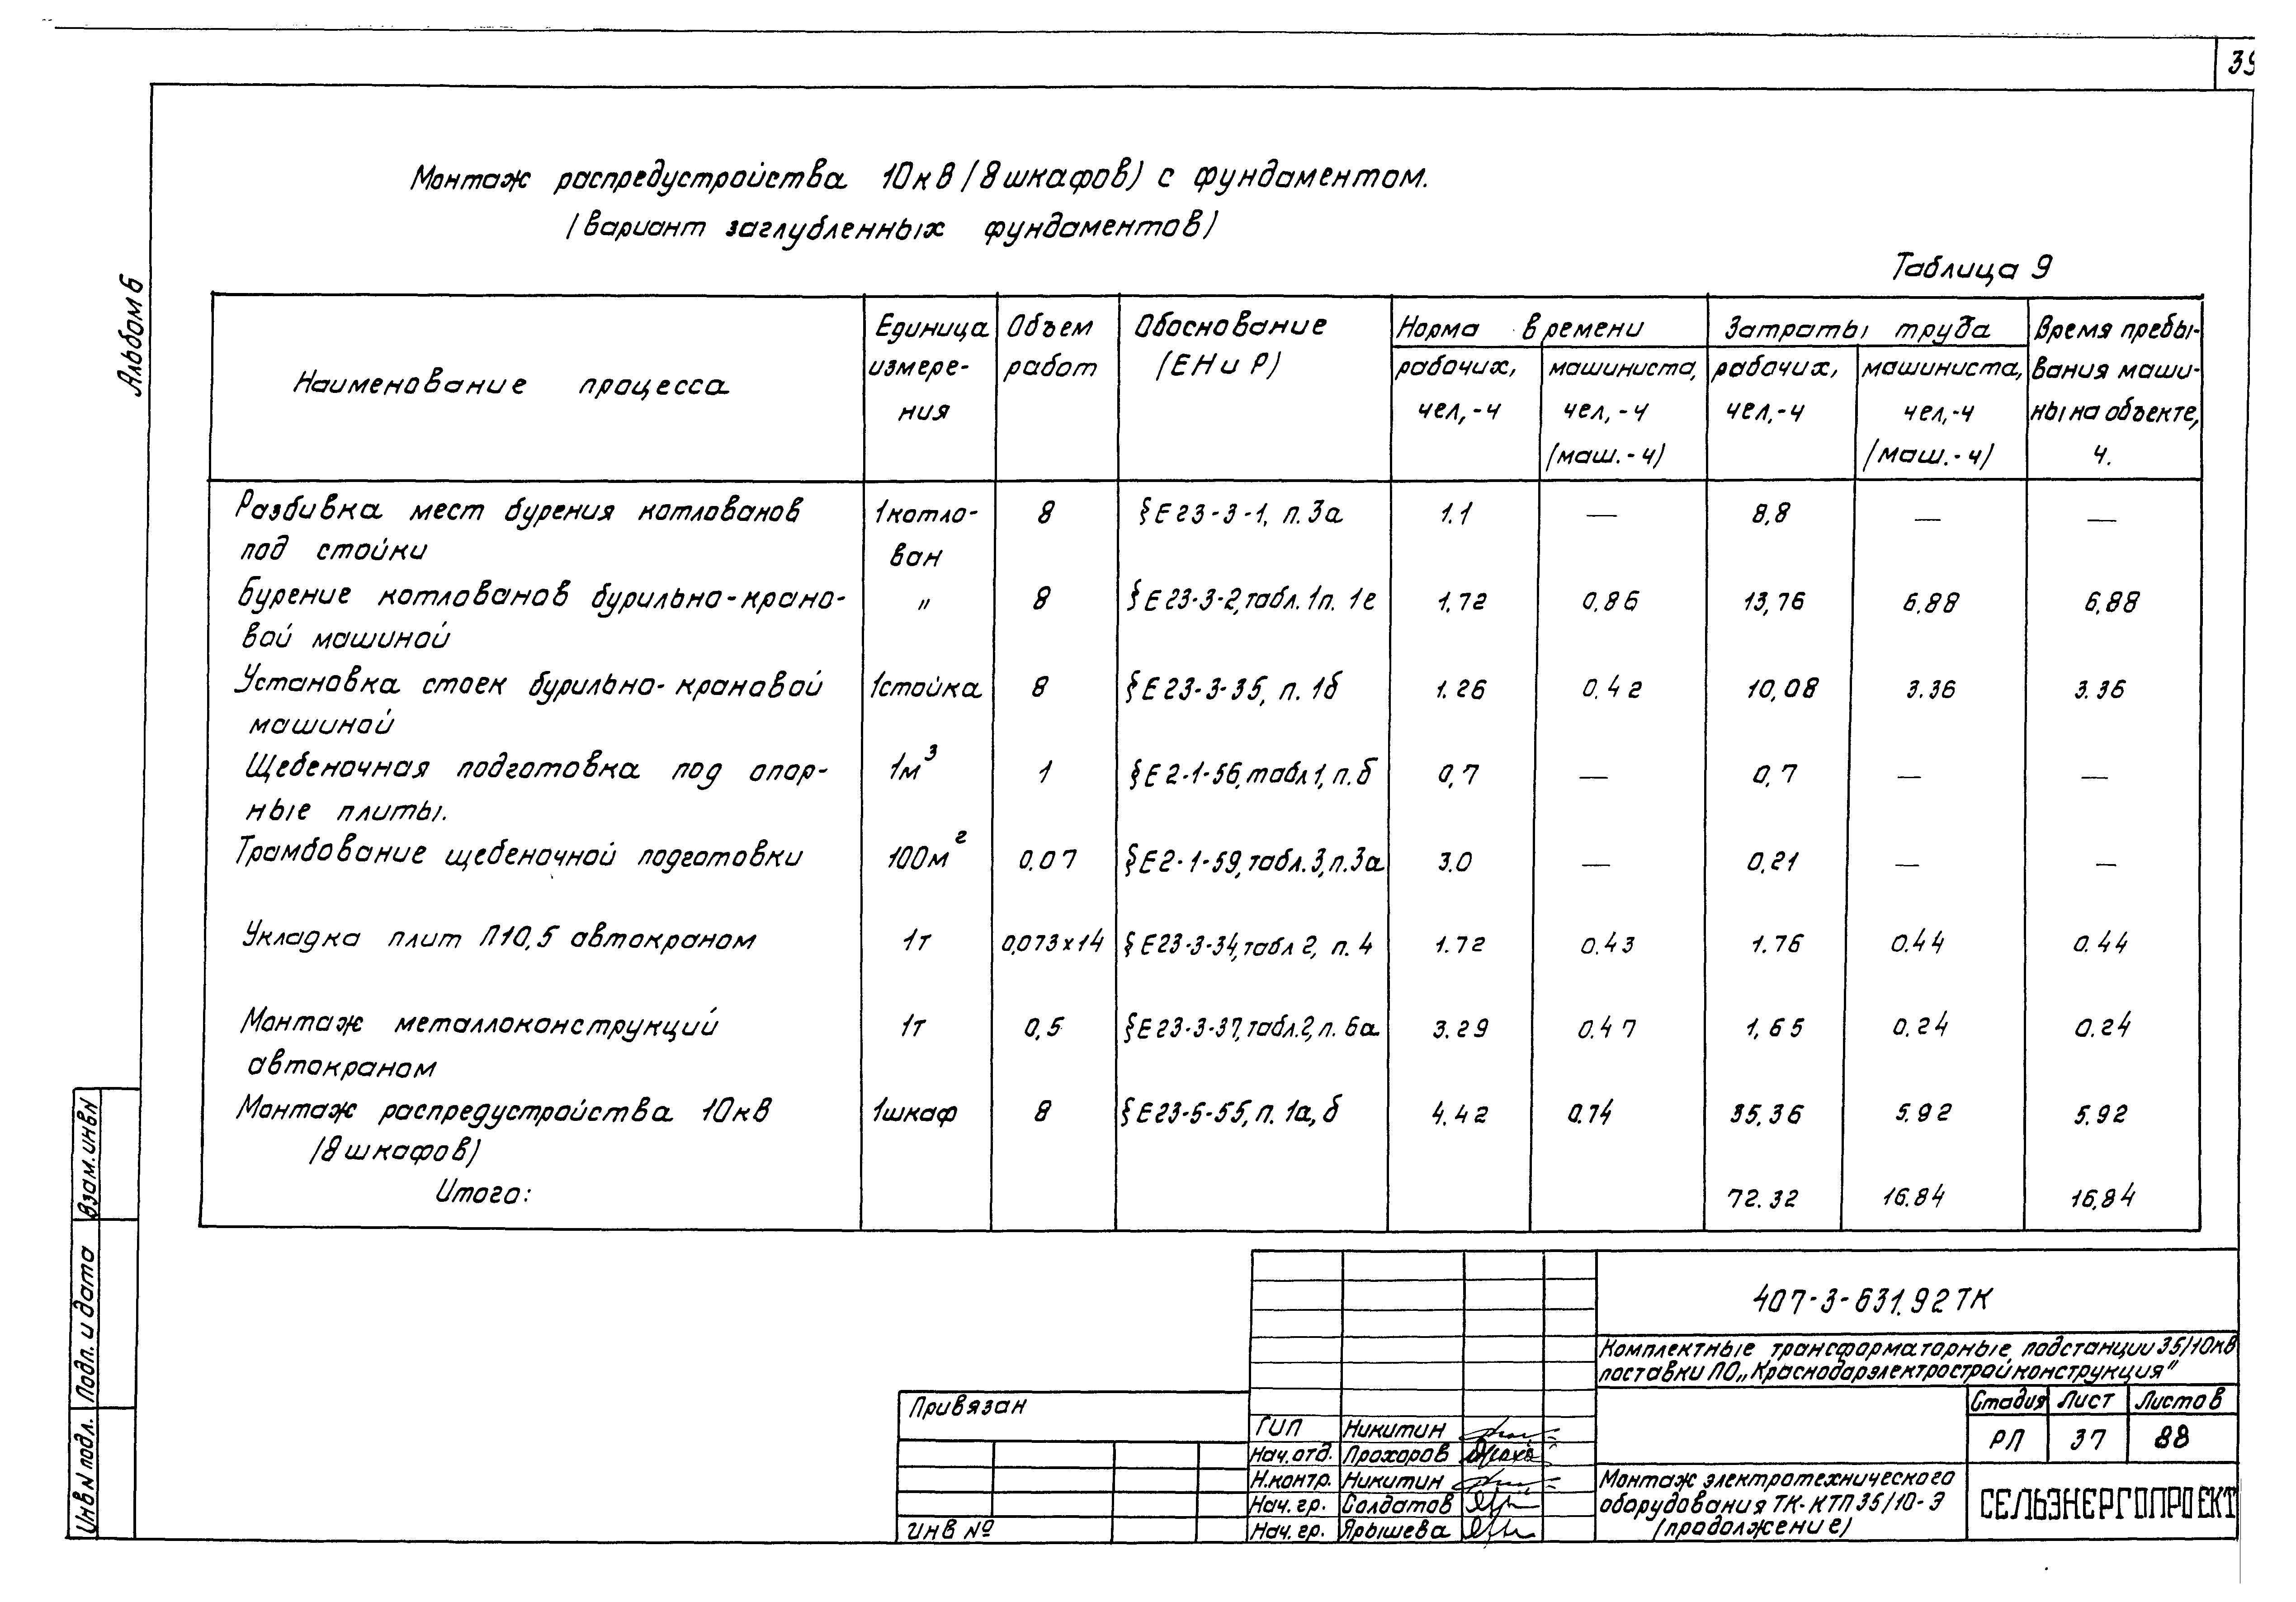 39
Монтаж распредустройства 10кВ (8шкафов) с фундаментом.
(вариант заглубленных фундаментов)
Таблица 9
Альбом 6
Наименование процесса
Единица измере- ния
Объем работ
Обоснование (ЕНиР)
Норма времени
рабочих, чел,-ч
машиниста, чел,-ч (маш.-ч)
Затраты труда
рабочих, чел.-ч
машиниста, чел,-ч (маш.-ч)
Время пребы- вания маши- ны на объекте, ч.
Разбивка мест бурения котлованов 1котло- 8 §Е23-3-1, п.3а 1.1 — 8,8 — —
под стойки ван
Бурение котлованов бурильно-крано- " 8 §Е23-3-2,табл.1п. 1е 1.72 0.86 13,76 6,88 6,88
вой машиной
Установка стоек бурильно-крановой 1стойка 8 §Е23-3-35, п.1б 1.26 0.42 10,08 3.36 3.36
машиной
Щебеночная подготовка под опор- 1м³ 1 §Е2-1-56,табл1,п.б 0,7 — 0,7 — —
ные плиты.
Трамбование щебеночной подготовки 100м² 0.07 §Е2-1-59,табл.3,п.3а 3.0 — 0.21 — —
Укладка плит П10,5 автокраном 1т 0,073х14 §Е23-3-34,табл 2, п.4 1.72 0.43 1.76 0.44 0.44
Монтаж металлоконструкций 1т 0,5 §Е23-3-37,табл.2,п. 6а 3.29 0.47 1,65 0.24 0.24
автокраном
Монтаж распредустройства 10кВ 1шкаф 8 §Е23-5-55,п.1а,б 4.42 0.74 35,36 5.92 5.92
(8шкафов)
Итого: 72.32 16.84 16,84
Взам.инвN
Подп. и дата
Инв N подл.
407-3-631.92ТК
Комплектные трансформаторные подстанции 35/10кВ
поставки ПО„Краснодарэлектростройконструкция"
Привязан
Стадия Лист Листов
РП 37 88
ГИП Никитин
Нач.отд. Прохоров
Н.контр. Никитин
Нач.гр. Солдатов
Нач.гр. Ярышева
Инв №
Монтаж электротехнического
оборудования ТК-КТП 35/10-Э
(продолжение)
СЕЛЬЭНЕРГОПРОЕКТ